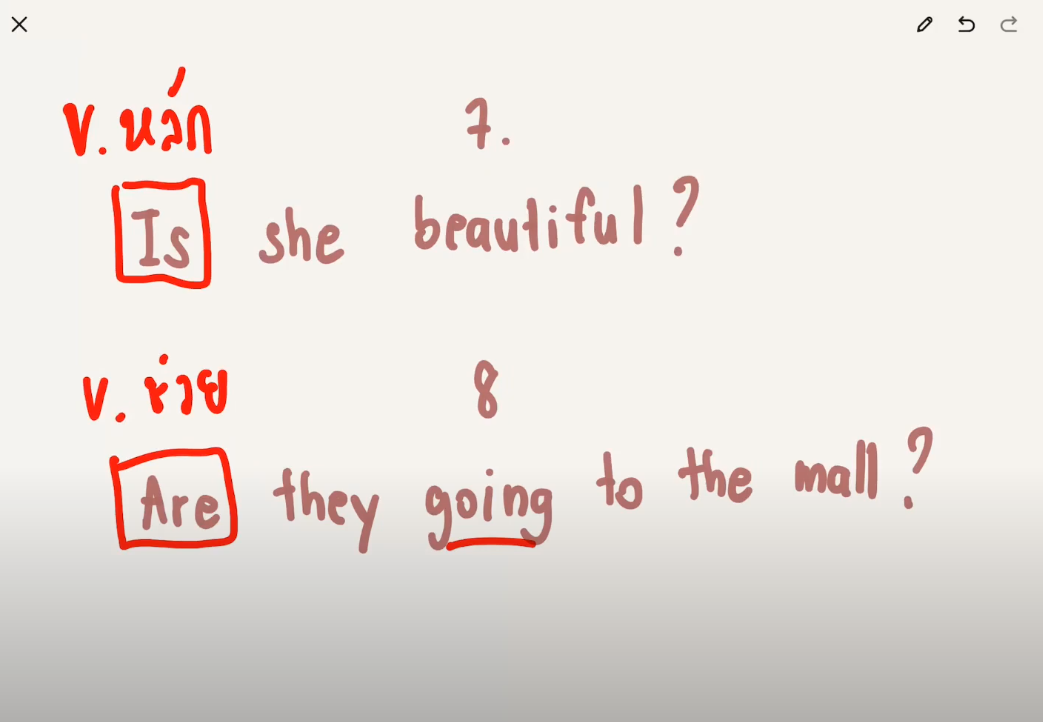 V. หลัก
7.
Is she beautiful?
v. ช่วย
8
Are they going to the mall?